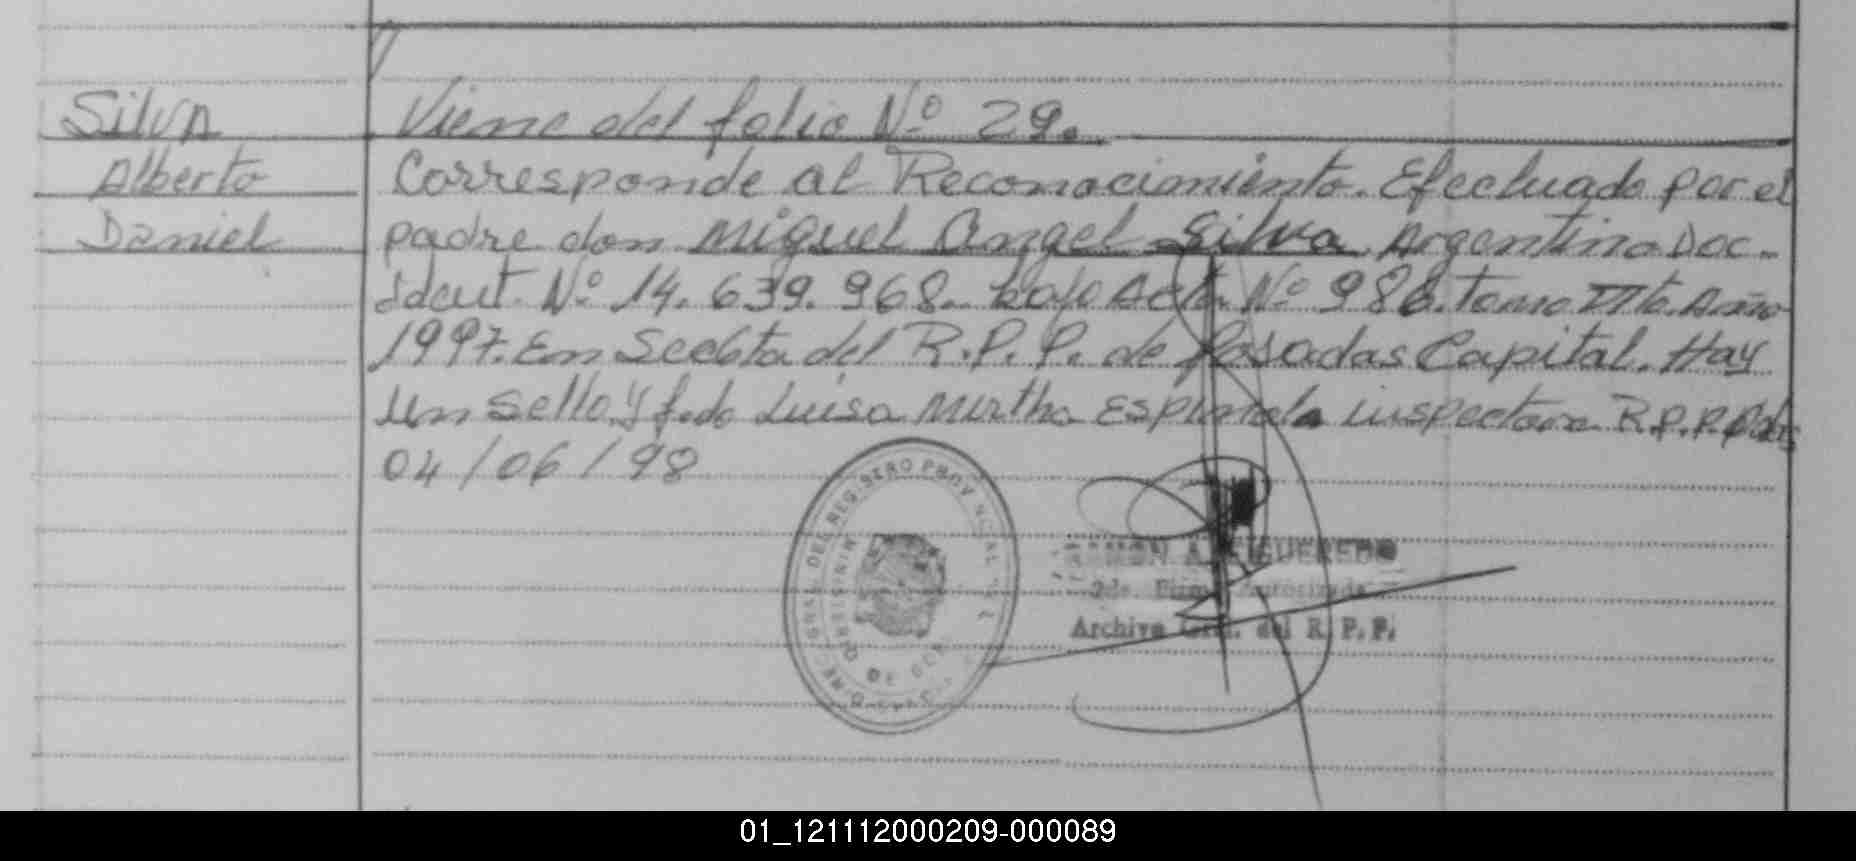 Silva
Alberto
Daniel
Viene del folio Nº 29.
Corresponde al Reconocimiento. Efectuado por el
padre don Miguel Angel Silva Argentino Doc.
Ident. Nº 14.639.968. bajo Acta Nº 986. Tomo Año
1997. En Secc 6ta del R.P.P. de Posadas Capital. Hay
un sello y f.do Luisa Mirtha Espindola inspectora R.P.P.
04/06/98
RAMON A. FIGUEREDO
2da. Firma Autorizada
Archivo Gral. del R. P. P.
01_121112000209-000089